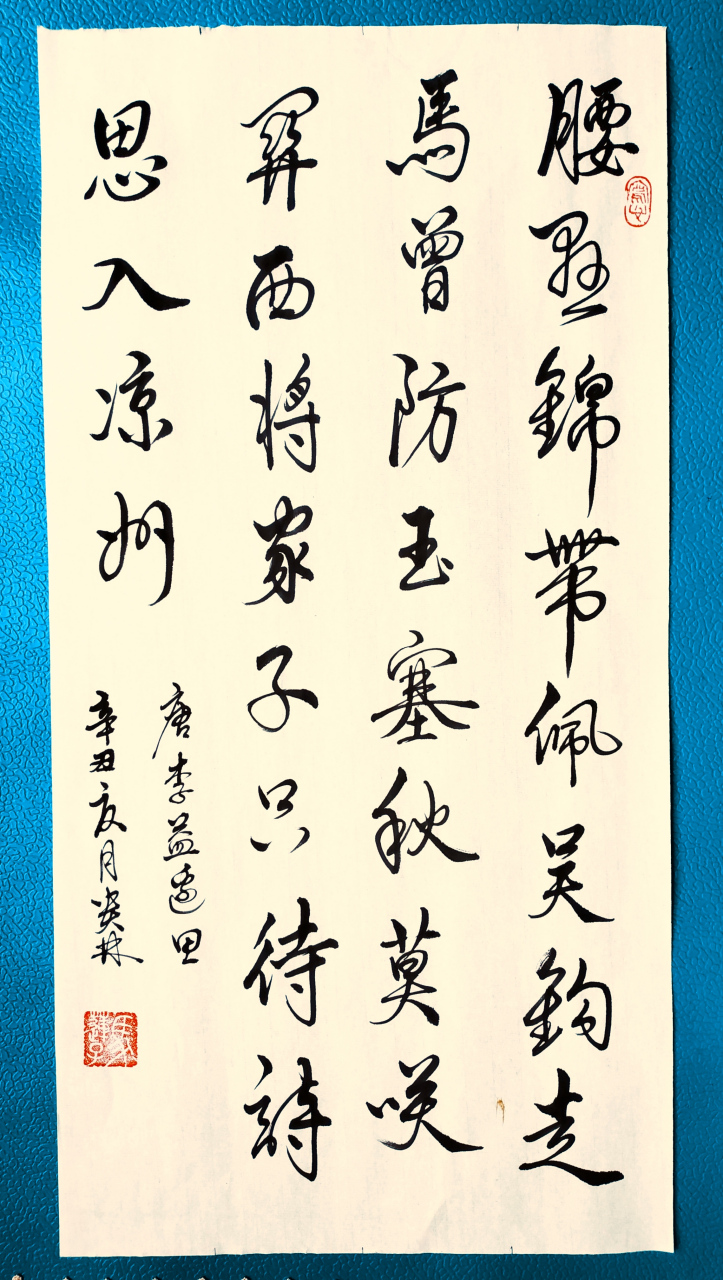 腰懸錦帶佩吴鈎走
馬曾防玉塞秋莫咲
關西將家子只待詩
思入凉州
唐李益邊思
辛丑夏月林